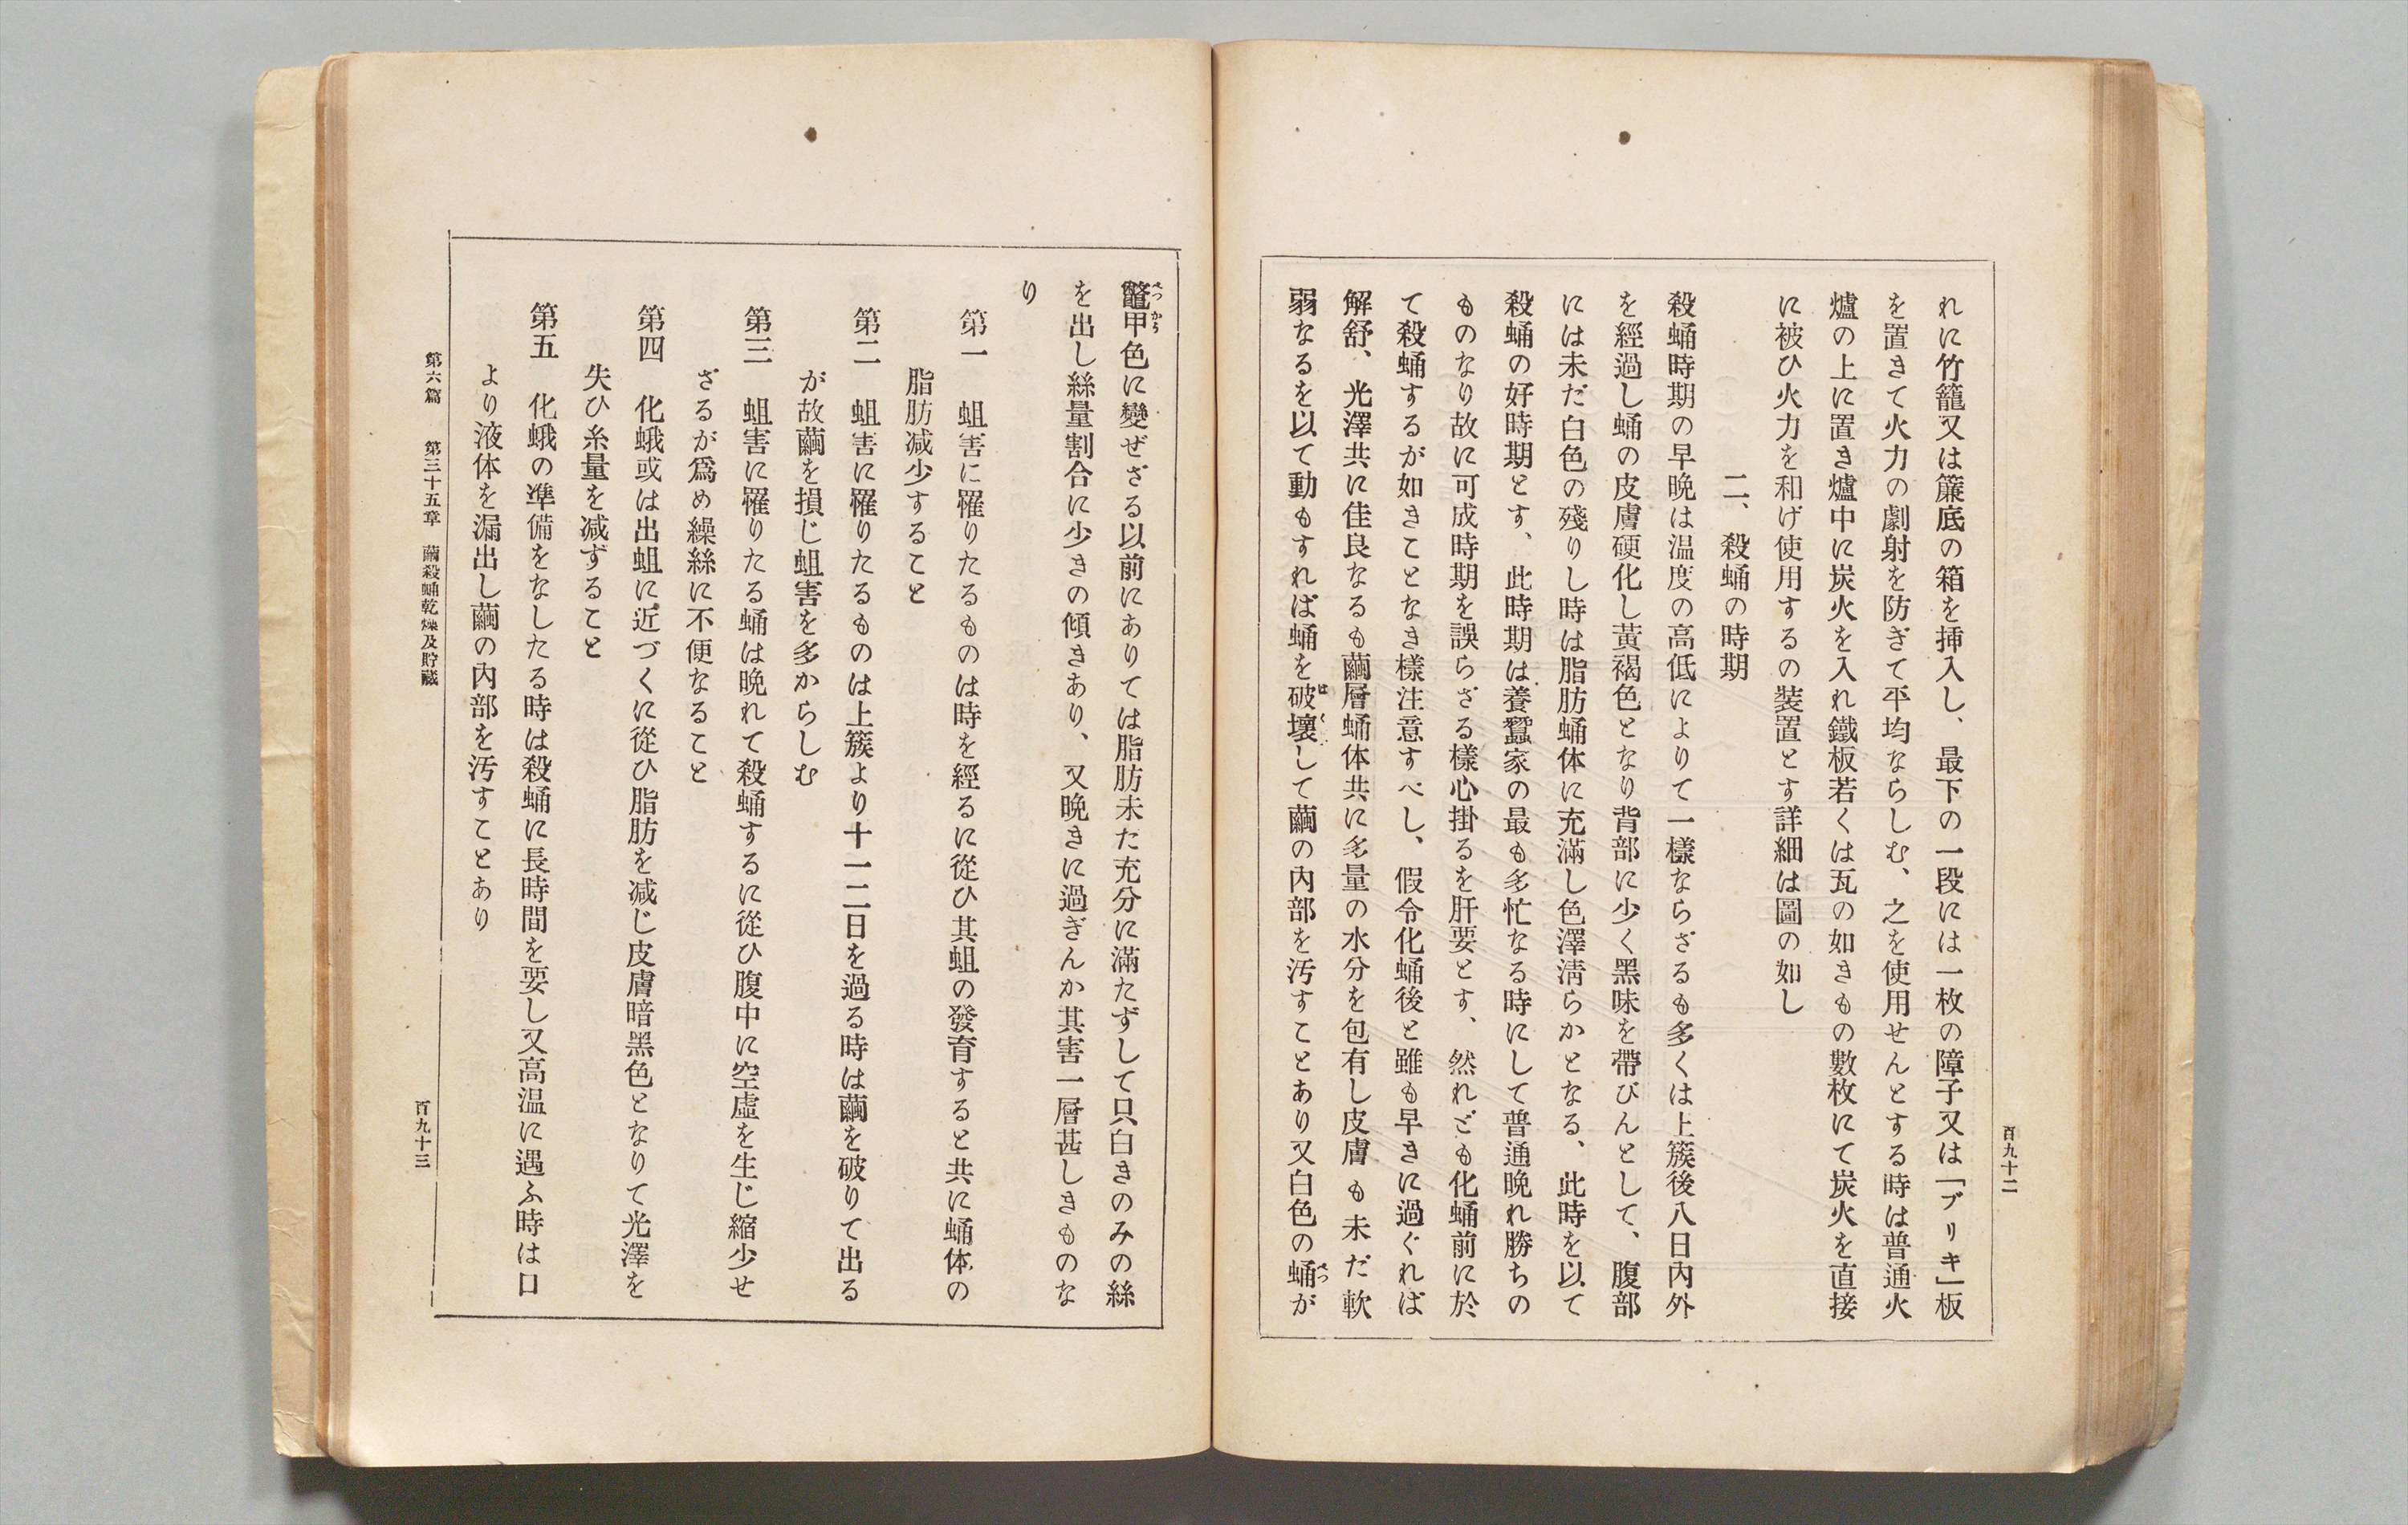 百九十二
れに竹籠又は簾底の箱を挿入し、最下の一段には一枚の障子又は「ブリキ」板
を置きて火力の劇射を防ぎて平均ならしむ、之を使用せんとする時は普通火
爐の上に置き爐中に炭火を入れ鐵板若くは瓦の如きもの數枚にて炭火を直接
に被ひ火力を和げ使用するの装置とす詳細は圖の如し
二、殺蛹の時期
殺蛹時期の早晩は温度の高低によりて一樣ならざるも多くは上簇後八日內外
を經過し蛹の皮膚硬化し黃褐色となり背部に少く黑味を帶びんとして、腹部
には未だ白色の殘りし時は脂肪蛹体に充滿し色澤淸らかとなる、此時を以て
殺蛹の好時期とす、此時期は養蠶家の最も多忙なる時にして普通晩れ勝ちの
ものなり故に可成時期を誤らざる樣心掛るを肝要とす、然れども化蛹前に於
て殺蛹するが如きことなき樣注意すべし、假令化蛹後と雖も早きに過ぐれば
解舒、光澤共に佳良なるも繭層蛹体共に多量の水分を包有し皮膚も未だ軟
弱なるを以て動もすれば蛹を破壞して繭の內部を汚すことあり又白色の蛹が
鼈甲色に變ぜざる以前にありては脂肪未た充分に滿たずして只白きのみの絲
を出し絲量割合に少きの傾きあり、又晩きに過ぎんか其害一層甚しきものな
り
第一　蛆害に罹りたるものは時を經るに從ひ其蛆の發育すると共に蛹体の
脂肪減少すること
第二　蛆害に罹りたるものは上簇より十一二日を過る時は繭を破りて出る
が故繭を損じ蛆害を多からしむ
第三　蛆害に罹りたる蛹は晩れて殺蛹するに從ひ腹中に空虛を生じ縮少せ
ざるが爲め繰絲に不便なること
第四　化蛾或は出蛆に近づくに從ひ脂肪を减じ皮膚暗黑色となりて光澤を
失ひ糸量を减ずること
第五　化蛾の準備をなしたる時は殺蛹に長時間を要し又高温に遇ふ時は口
より液体を漏出し繭の內部を汚すことあり
第六篇　第三十五章　繭殺蛹乾燥及貯藏
百九十三